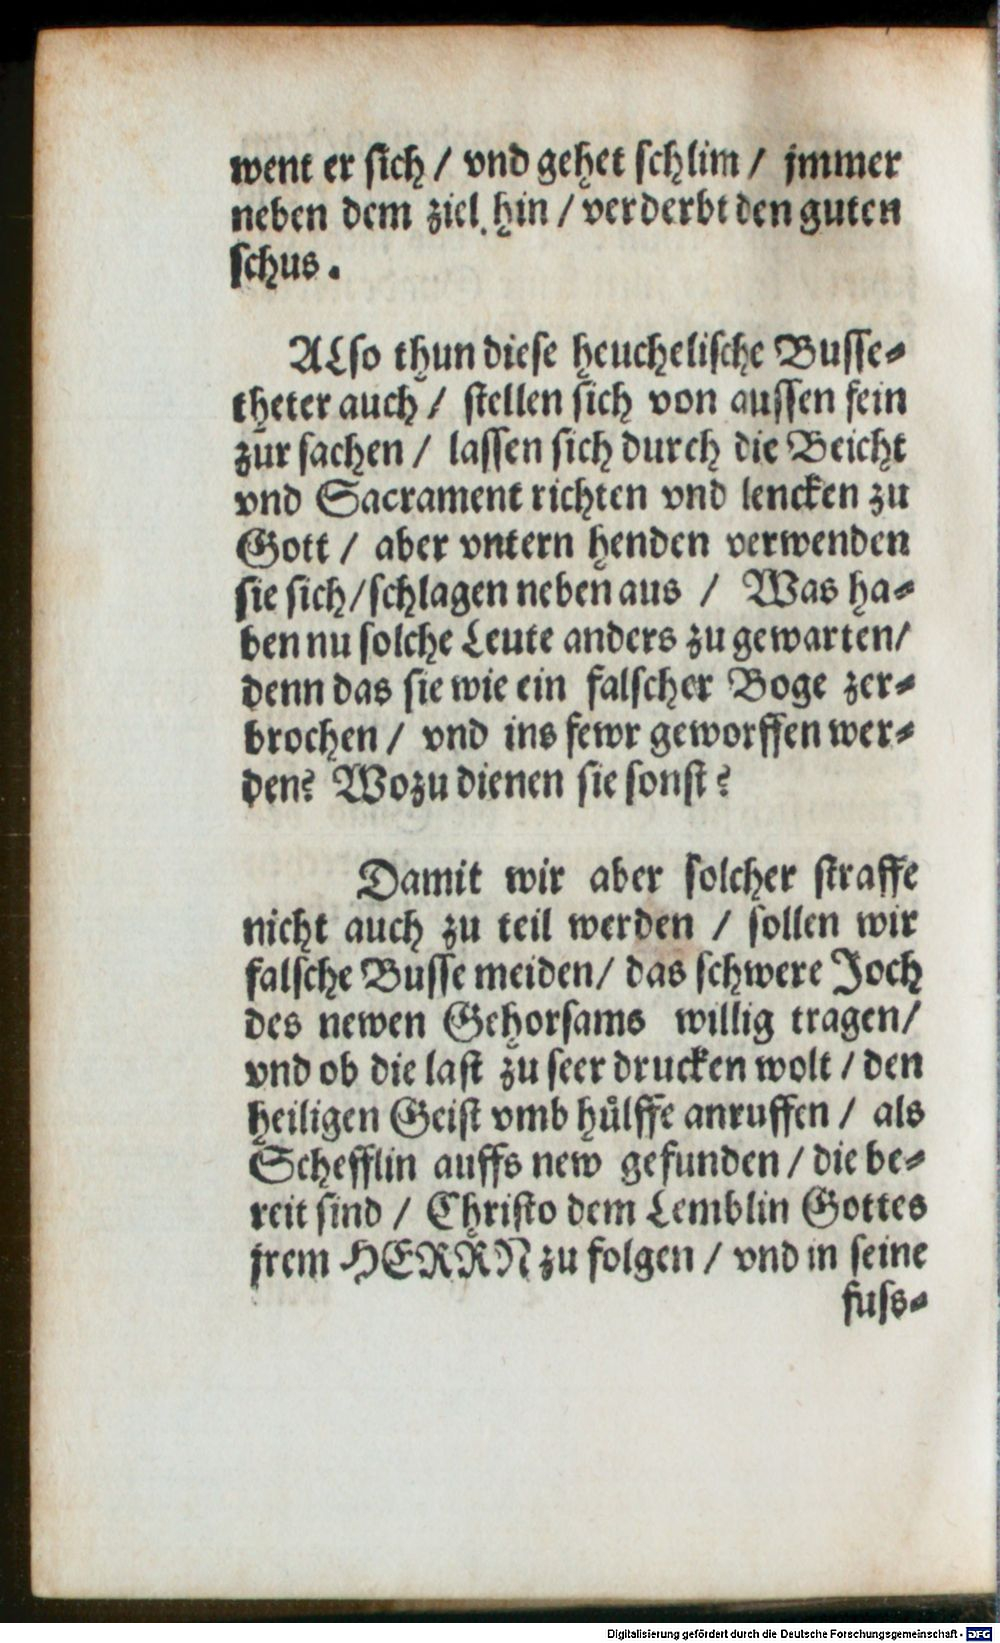 went er sich / vnd gehet schlim / jmmer
neben dem ziel hin / verderbt den guten
schus.
ALso thun diese heuchelische Busse-
theter auch / stellen sich von aussen fein
zur sachen / lassen sich durch die Beicht
vnd Sacrament richten vnd lencken zu
Gott / aber vntern henden verwenden
sie sich / schlagen neben aus / Was ha-
ben nu solche Leute anders zu gewarten /
denn das sie wie ein falscher Boge zer-
brochen / vnd ins fewr geworffen wer-
den? Wozu dienen sie sonst?
Damit wir aber solcher straffe
nicht auch zu teil werden / sollen wir
falsche Busse meiden / das schwere Joch
des newen Gehorsams willig tragen /
vnd ob die last zu seer drucken wolt / den
heiligen Geist vmb hülffe anruffen / als
Schefflin auffs new gefunden / die be-
reit sind / Christo dem Lemblin Gottes
jrem HERRN zu folgen / vnd in seine
fuss-
Digitalisierung gefördert durch die Deutsche Forschungsgemeinschaft - DFG